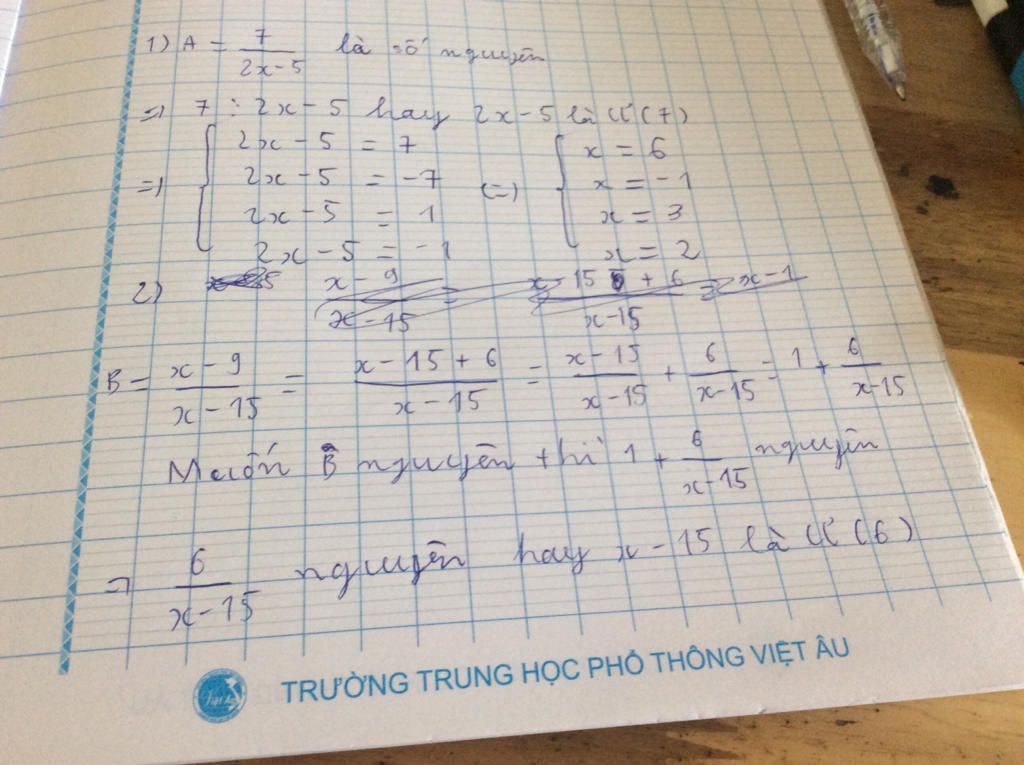 1) A = 7/(2x-5) là số nguyên
=) 7 ⋮ 2x-5 hay 2x-5 là Ư(7)
=) { 2x-5 = 7 (=) { x = 6
2x-5 = -7 x = -1
2x-5 = 1 x = 3
2x-5 = -1 x = 2
2)
B = (x-9)/(x-15) = (x-15+6)/(x-15) = (x-15)/(x-15) + 6/(x-15) = 1 + 6/(x-15)
Muốn B nguyên thì 1 + 6/(x-15) nguyên
=) 6/(x-15) nguyên hay x-15 là Ư(6)
TRƯỜNG TRUNG HỌC PHỔ THÔNG VIỆT ÂU